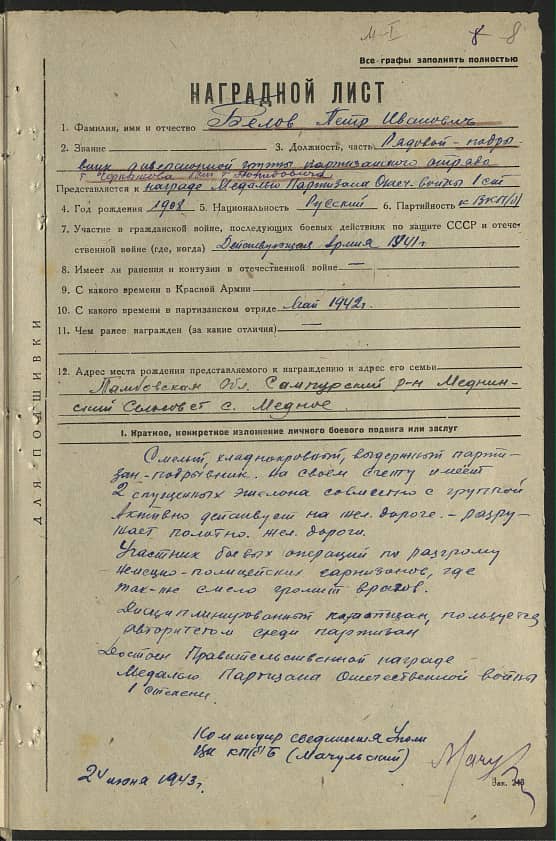 М-I 8 8
Все графы заполнять полностью
НАГРАДНОЙ ЛИСТ
1. Фамилия, имя и отчество Белов Петр Иванович
2. Звание 3. Должность, часть Рядовой-подры
вник диверсионной группы партизанского отряда
Представляется к награде Медалью Партизана Отеч. войны 1 ст
4. Год рождения 1908 5. Национальность Русский 6. Партийность к ВКП(б)
7. Участие в гражданской войне, последующих боевых действиях по защите СССР и отече-
ственной войне (где, когда) Действующая Армия 1941г.
8. Имеет ли ранения и контузии в отечественной войне —
9. С какого времени в Красной Армии
10. С какого времени в партизанском отряде Май 1942г.
11. Чем ранее награжден (за какие отличия) —
12. Адрес места рождения представляемого к награждению и адрес его семьи
Тамбовская Обл. Сампурский р-н Меднин-
ский Сельсовет с. Медное.
I. Краткое, конкретное изложение личного боевого подвига или заслуг
Смелый, хладнокровный, выдержанный парти-
зан-подрывник. На своем счету имеет
2 спущенных эшелона совместно с группой
Активно действует на жел. дороге. - разру-
шает полотно жел. дороги.
Участник боевых операций по разгрому
немецко-полицейских гарнизонов, где
так-же смело громил врагов.
Дисциплинированный партизан, пользуется
авторитетом среди партизан
Достоин Правительственной награде
Медалью Партизана Отечественной войны
1 степени.
Командир соединения Упол
ЦК КП(б)Б (Мачульский)
24 июня 1943г.
Зак. 248
ДЛЯ ПОДШИВКИ